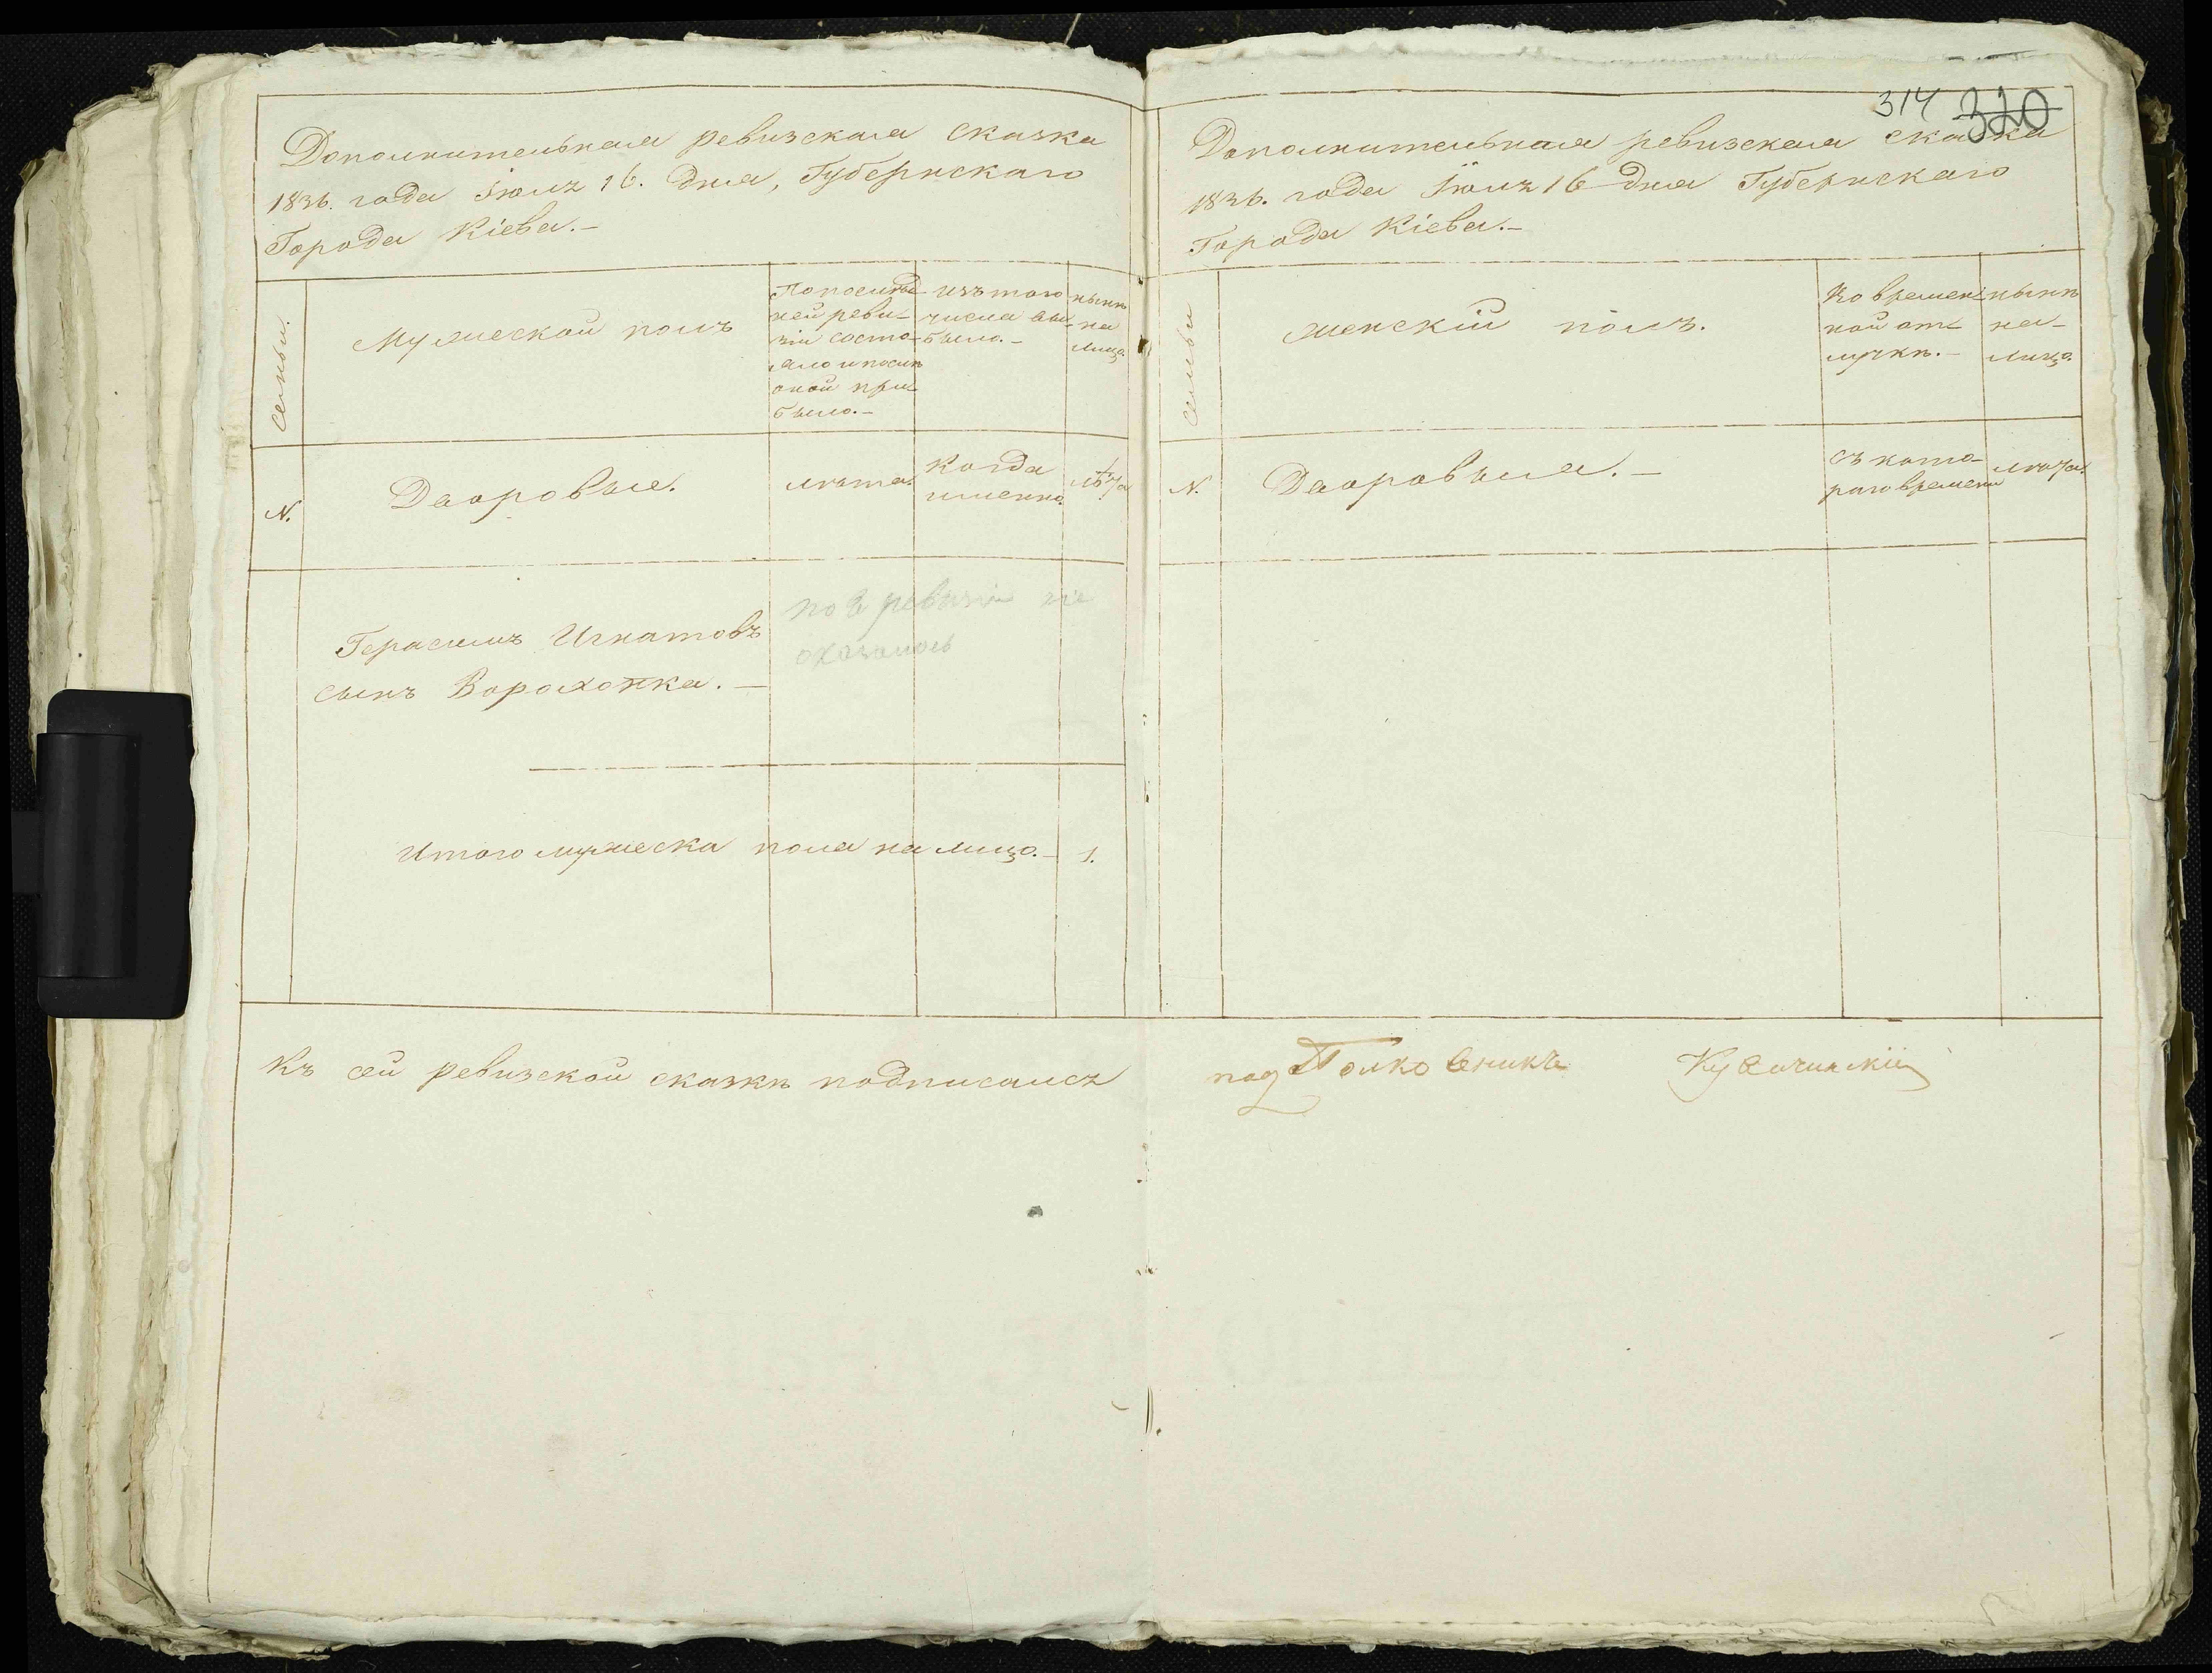 Дополнительная ревизская сказка
1836. года Іюля 16. дня, Губернскаго
Города Кіева.-
семьи.
Мужеской полъ
По послѣд-
ней реви-
зіи состо-
яло и послѣ
оной при
было.-
изъ того
числа вы-
было.-
нынѣ
на
лицо.
N.
Дворовые.
лѣта.
когда
именно.
лѣта
Герасимъ Игнатовъ
сынъ Ворохонка.-
по 8 ревизіи не
оказалось
Итого мужеска пола на лицо.- 1.
Къ сей ревизской сказкѣ подписался
314 320
Дополнительная ревизская сказка
1836. года Іюля 16 дня Губернскаго
Города Кіева.-
семьи
женскій полъ.
Во времен-
ной от-
лучкѣ.-
нынѣ
на-
лицо.
N.
Дворовыя.-
съ кото-
раго времени
лѣта.
подПолковникъ